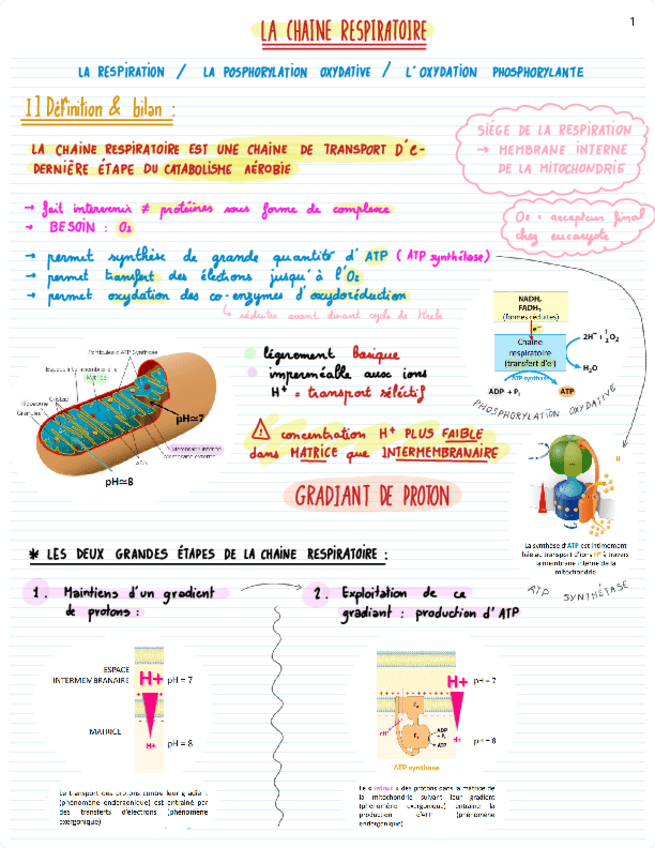 1
LA CHAINE RESPIRATOIRE
LA RESPIRATION / LA POSPHORYLATION OXYDATIVE / L'OXYDATION PHOSPHORYLANTE
I] Définition & bilan :
SIÈGE DE LA RESPIRATION
→ MEMBRANE INTERNE
DE LA MITOCHONDRIE
LA CHAINE RESPIRATOIRE EST UNE CHAÎNE DE TRANSPORT D'e-
DERNIÈRE ÉTAPE DU CATABOLISME AÉROBIE
→ fait intervenir ≠ protéines sous forme de complexe
→ BESOIN : O2
O2 = accepteur final
chez eucaryote
→ permet synthèse de grande quantité d'ATP (ATP synthétase)
→ permet transfert des électrons jusqu'à l'O2
→ permet oxydation des co-enzymes d'oxydoréduction
↳ réduites avant durant cycle de Krebs
NADH,
FADH2
(formes réduites)
e-
Chaîne
respiratoire
(transfert d'e-)
2H+ + 1/2 O2
H2O
ATP synthase
ADP + Pi
ATP
PHOSPHORYLATION OXYDATIVE
Particules d'ATP Synthase
Matrice
Cristae
Ribosome
Granules
ADN
Membrane interne
Membrane externe
pH≈7
pH≈8
légèrement Basique
imperméable aux ions
H+ = transport séléctif
⚠ concentration H+ PLUS FAIBLE
dans MATRICE que INTERMEMBRANAIRE
GRADIANT DE PROTON
H
La synthèse d'ATP est intimement
liée au transport d'ions H+ à travers
la membrane interne de la
mitochondrie
ATP SYNTHÉTASE
* LES DEUX GRANDES ÉTAPES DE LA CHAINE RESPIRATOIRE :
1. Maintiens d'un gradient
de protons :
2. Exploitation de ce
gradiant : production d'ATP
ESPACE
INTERMEMBRANAIRE
H+ pH = 7
MATRICE
H+ pH = 8
Le transport des protons contre leur gradient
(phénomène endergonique) est entraîné par
des transferts d'électrons (phénomène
exergonique)
H+ pH = 7
H+
ADP
+ Pi
ATP
H+ pH = 8
ATP synthase
Le « retour » des protons dans la matrice de
la mitochondrie suivant leur gradient
(phénomène exergonique) entraîne la
production d'ATP (phénomène
endergonique)